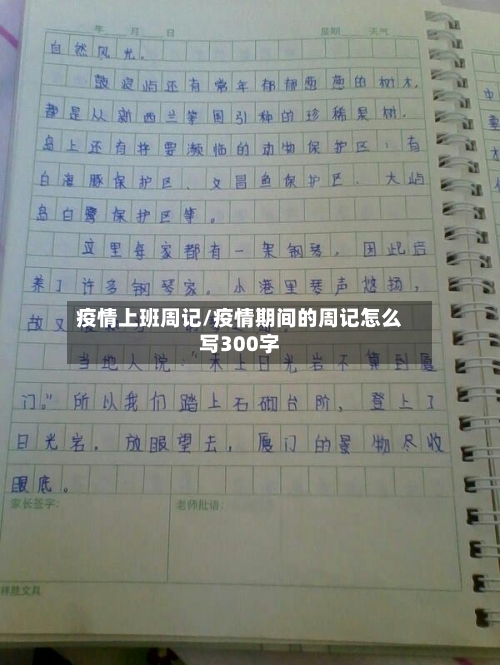 年 月 日 星期 天气
自然风光。
鼓浪屿还有常年郁郁葱葱的树木,
都是从新西兰等国引种的珍稀果树。
岛上还有许要濒临的动物保护区:有
白海豚保护区、文昌鱼保护区、大屿
岛白鹭保护区等。
这里每家都有一架钢琴,因此后
养了许多钢琴家,小港里琴声悠扬,
故又
疫情上班周记/疫情期间的周记怎么
写300字
当地人说:“未上日光岩不算到厦
门。”所以我们踏上石砌台阶,登上了
日光岩。放眼望去,厦门的景物尽收
眼底。
家长签字: 老师批语:
祥胜文具